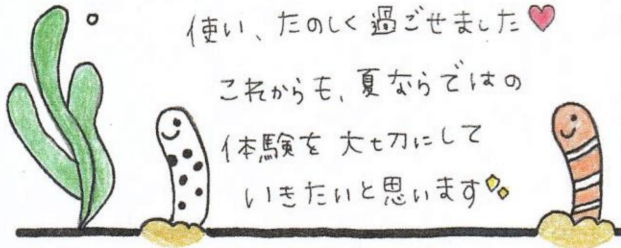 使い、たのしく過ごせました♥
これからも、夏ならではの
体験を大切にして
いきたいと思います